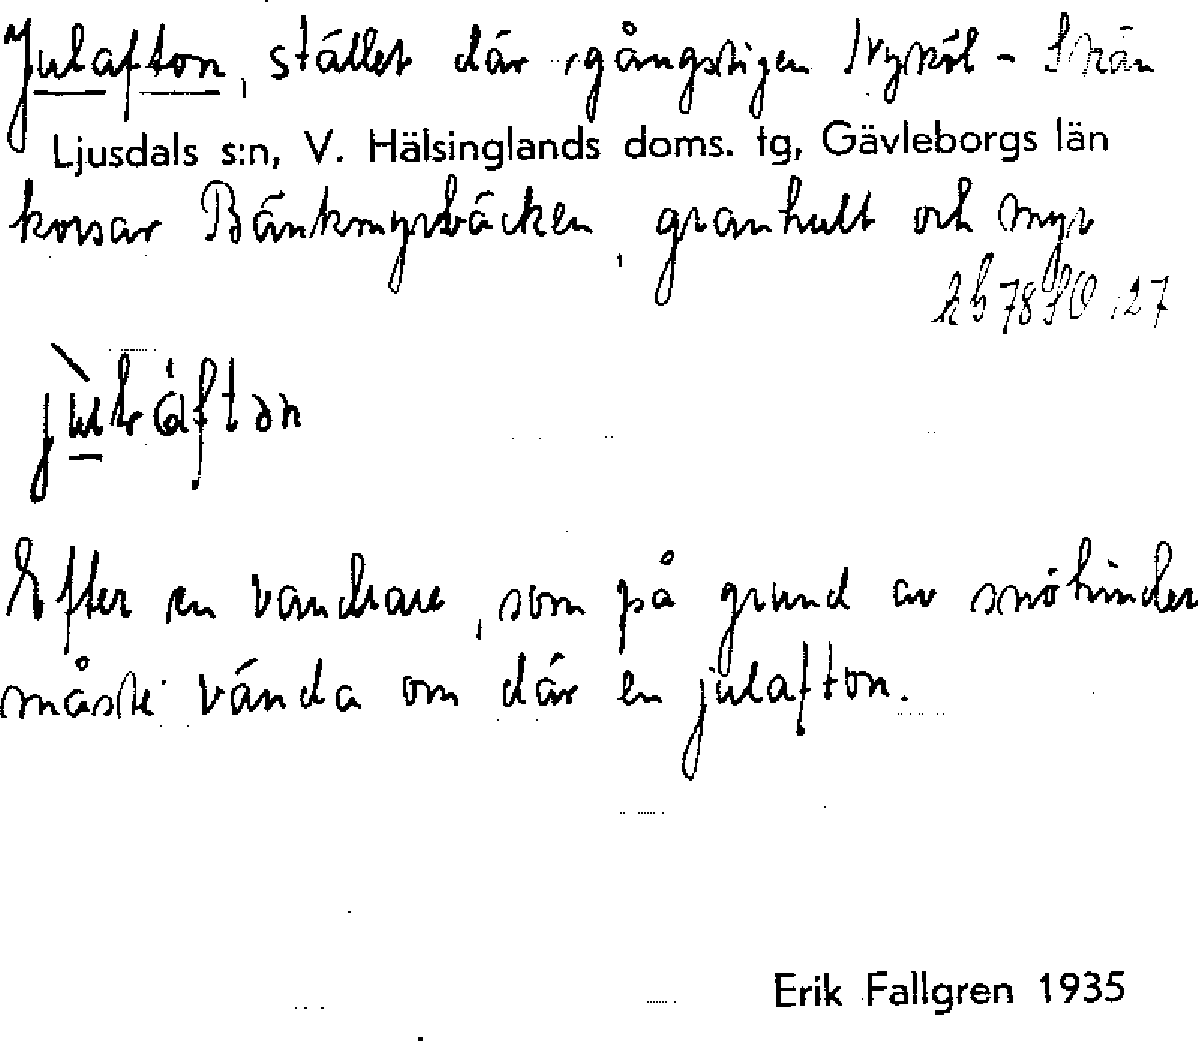 Julafton, stället där gångstigen Nyköl - Skån
Ljusdals s:n, V. Hälsinglands doms. tg, Gävleborgs län
korsar Bänkmyrbäcken, granhult och myr
2b 78 SO :27
Efter en vandrare, som på grund av snöhinder
måste vända om där en julafton.
Erik Fallgren 1935